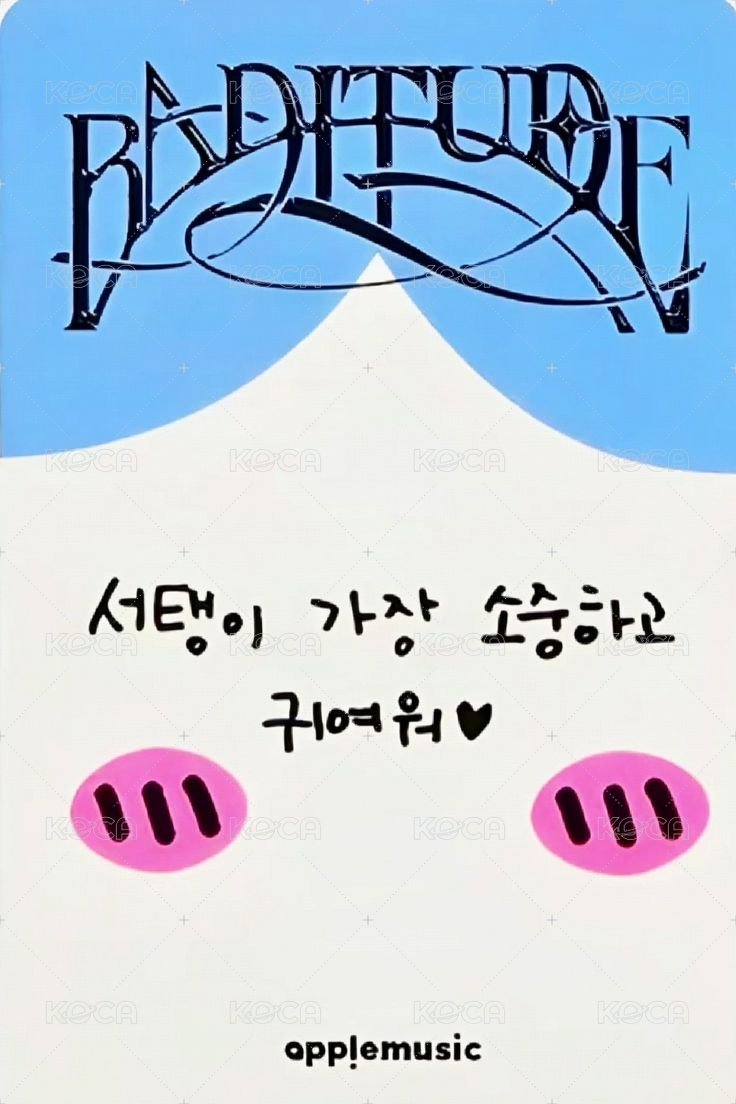 BADITUDE
서탱이 가장 소중하고
귀여워♥
applemusic
KOCA